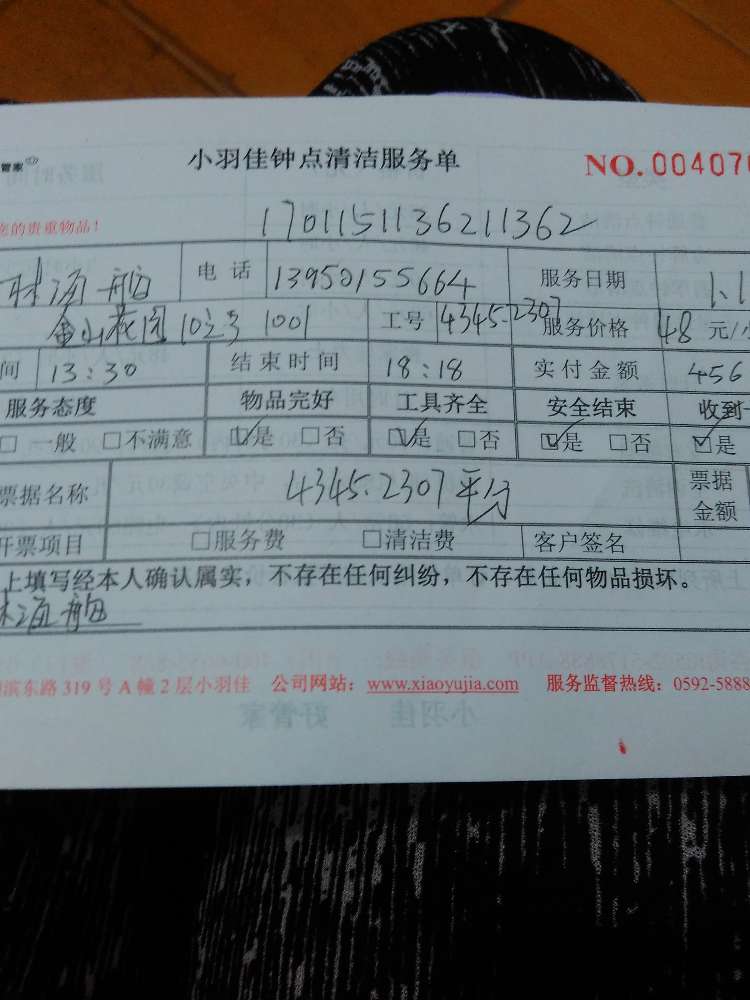 管家 小羽佳钟点清洁服务单 NO.00407
您的贵重物品!
1701151136211362
林海船 电话 13950155664 服务日期 1.1
金山花园10之3 1001 工号 4345.2307 服务价格 48 元/
间 13:30 结束时间 18:18 实付金额 456
服务态度 物品完好 工具齐全 安全结束 收到
□ 一般 □不满意 ☑是 □否 ☑是 □否 ☑是 □否 ☑是
票据名称 4345.2307平分 票据金额
开票项目 □服务费 □清洁费 客户签名
上填写经本人确认属实，不存在任何纠纷，不存在任何物品损坏。
林海船
滨东路 319 号 A 幢 2 层小羽佳 公司网站：www.xiaoyujia.com 服务监督热线：0592-5888
小羽佳 好管家